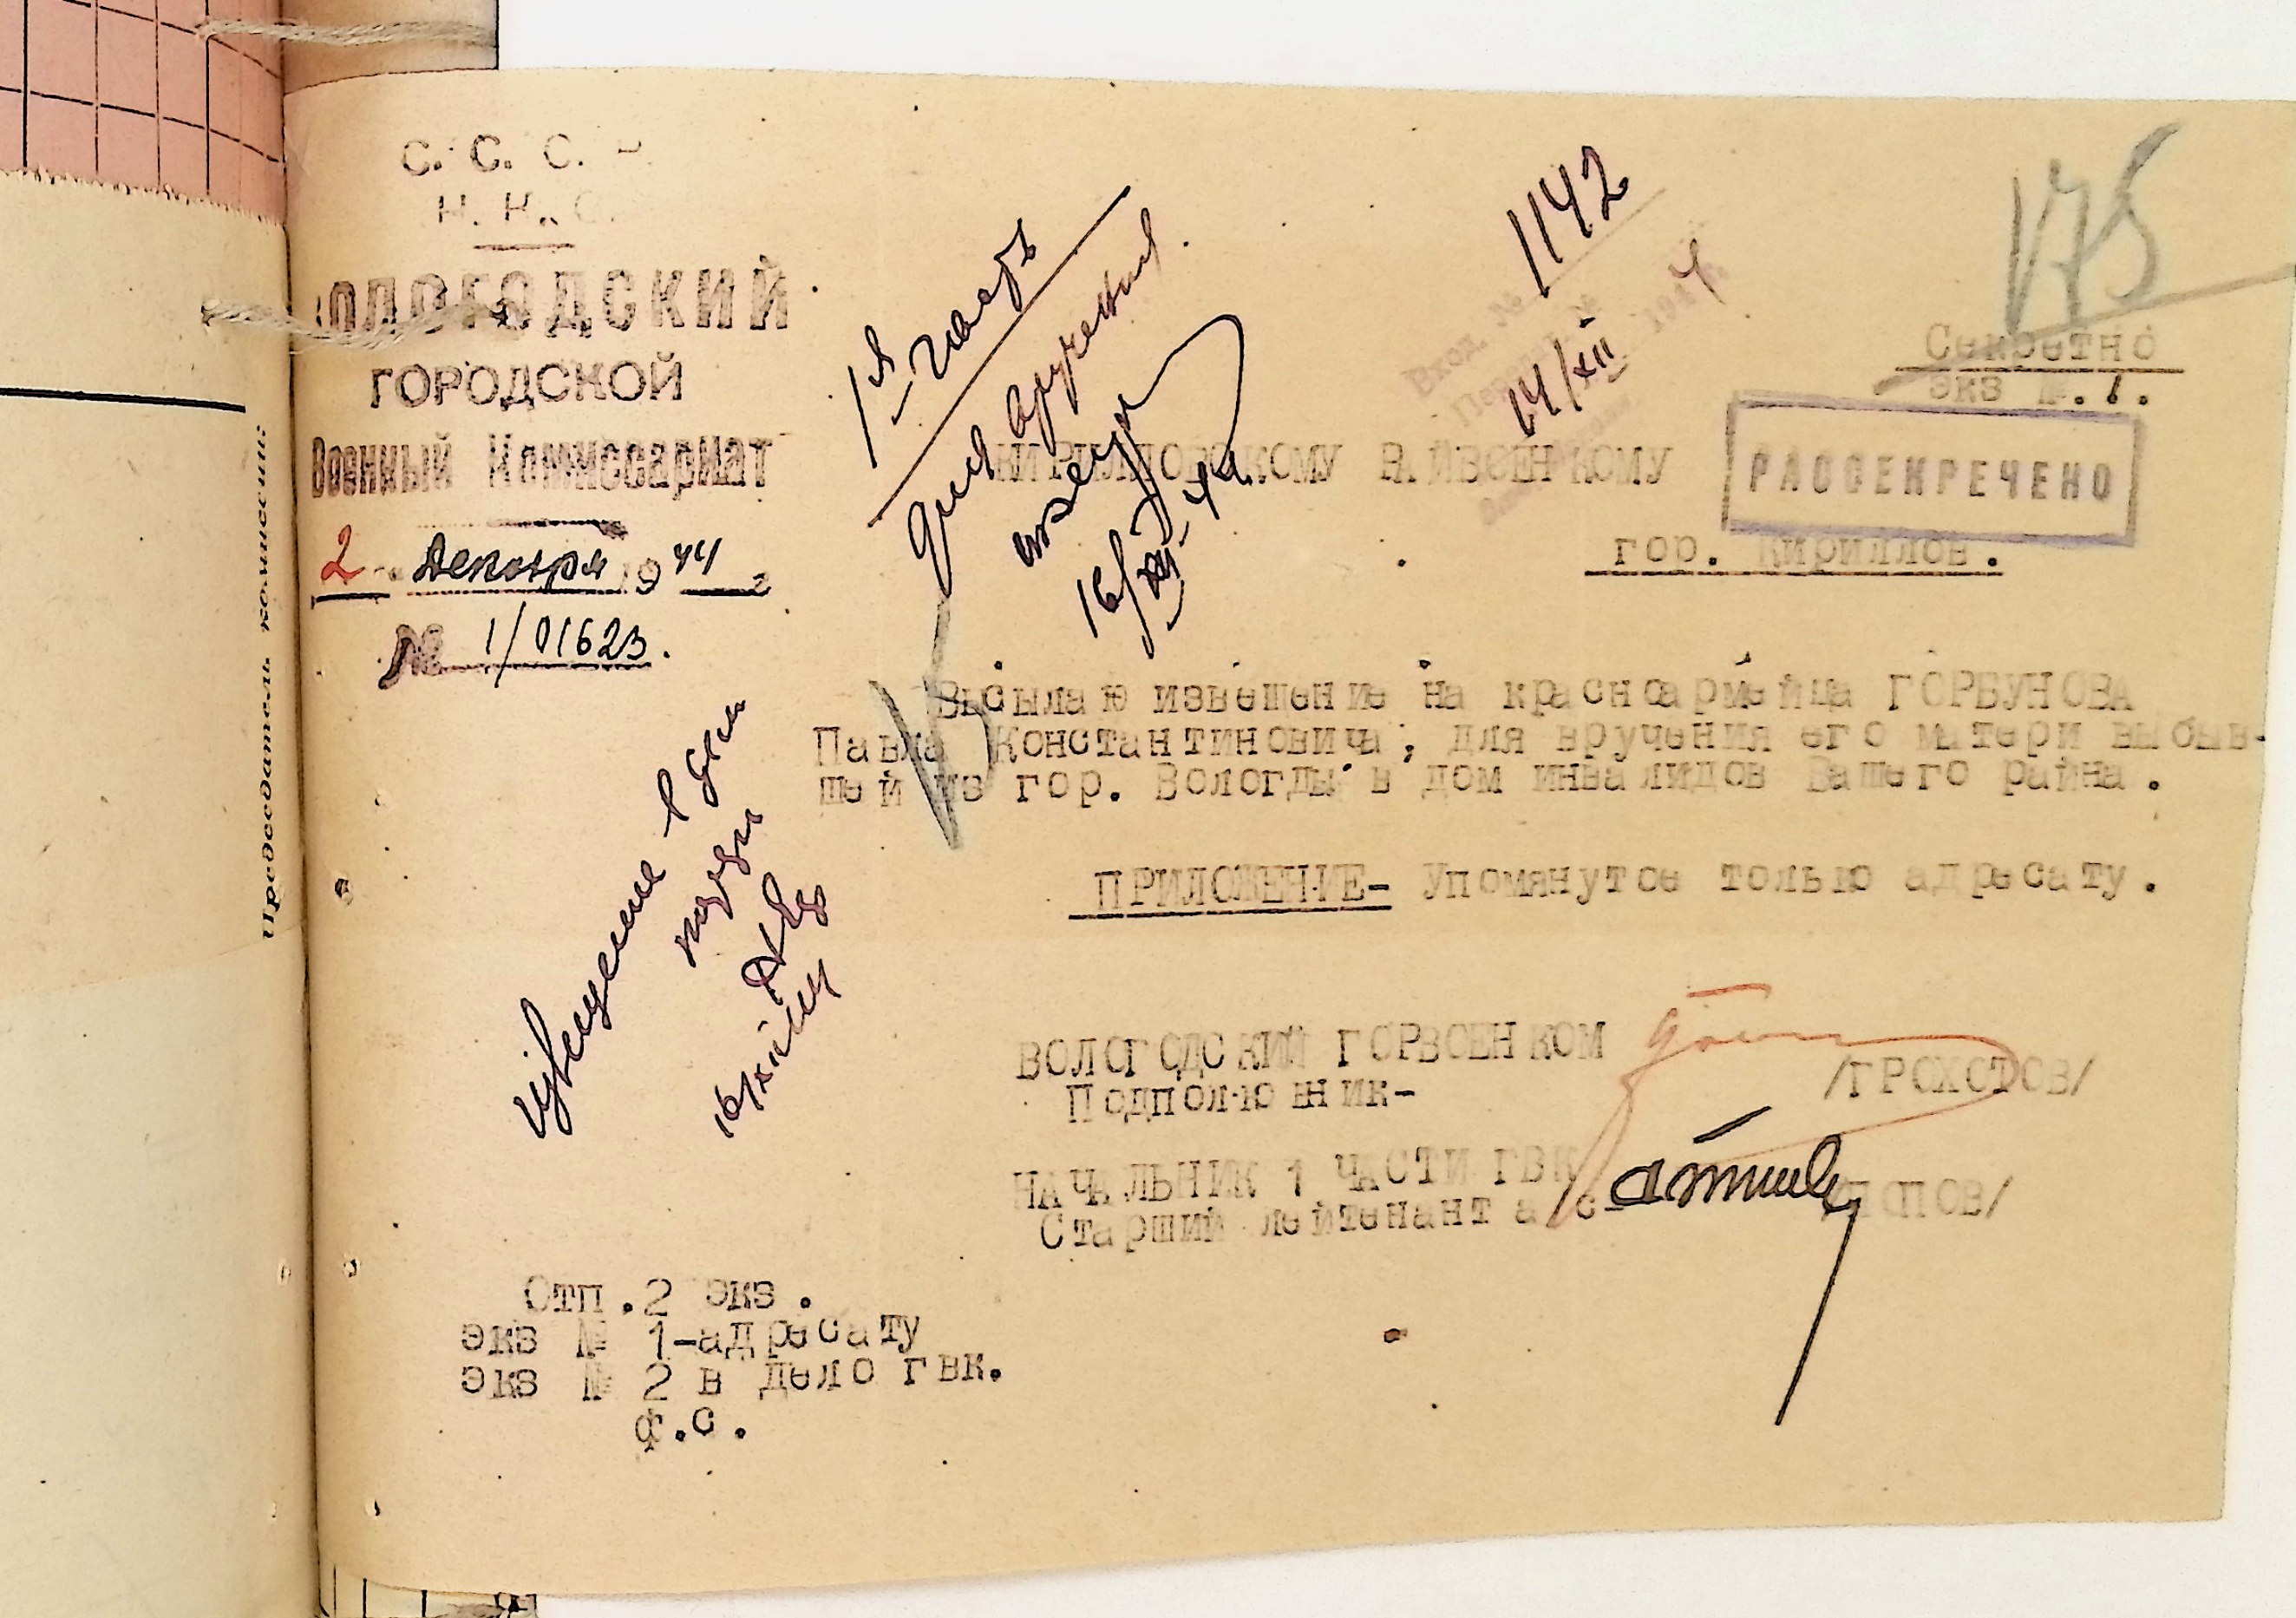 С. С. С. Р.
Н. К. О.
ВОЛОГОДСКИЙ
ГОРОДСКОЙ
Военный Комиссариат
2 декабря 1944 г
№ 1/01623.
1я часть
для вручения.
16/XII-44
1142
Вход. №
14/XII 1944
175
Секретно
экз №.1.
РАССЕКРЕЧЕНО
КИРИЛЛОВСКОМУ РАЙВОЕНКОМУ
гор. Кириллов.
Высылаю извешение на красноармейца ГОРБУНОВА
Павла Константиновича, для вручения его матери выбыв-
шей из гор. Вологды в дом инвалидов Вашего райна.
ПРИЛОЖЕНИЕ- Упомянутое только адресату.
Извещение
16/XII 44
ВОЛОГОДСКИЙ ГОРВОЕНКОМ
Подполковник- /ГРОХОТОВ/
НАЧАЛЬНИК 1 ЧАСТИ ГВК
Старший лейтенант а/с- /ПОПОВ/
Отп.2 экз.
экз № 1-адресату
экз № 2 в дело гвк.
ф.с.
Председатель комиссии: